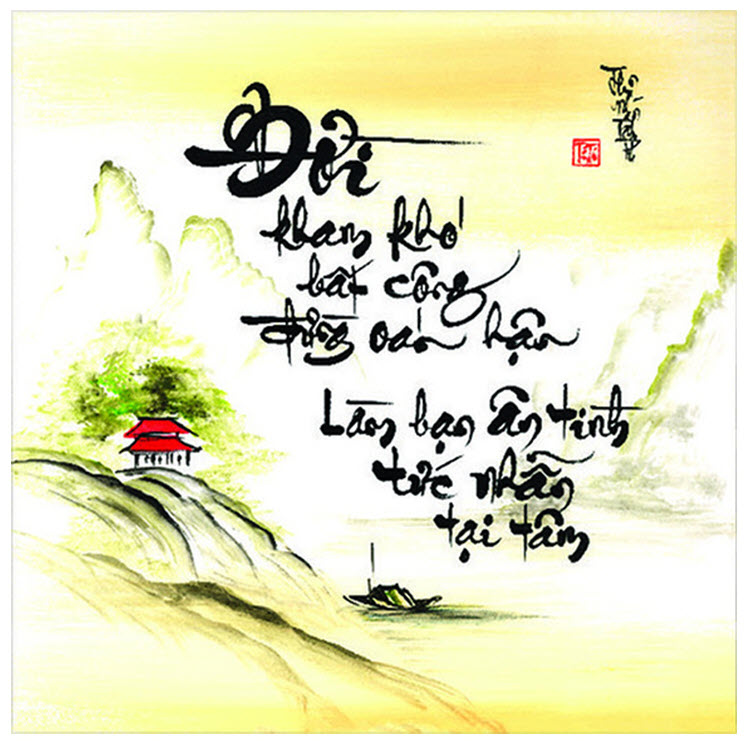 Đời
kham khổ
bất công
đừng oán hận
Làm bạn ân tình
tức nhẫn
tại tâm